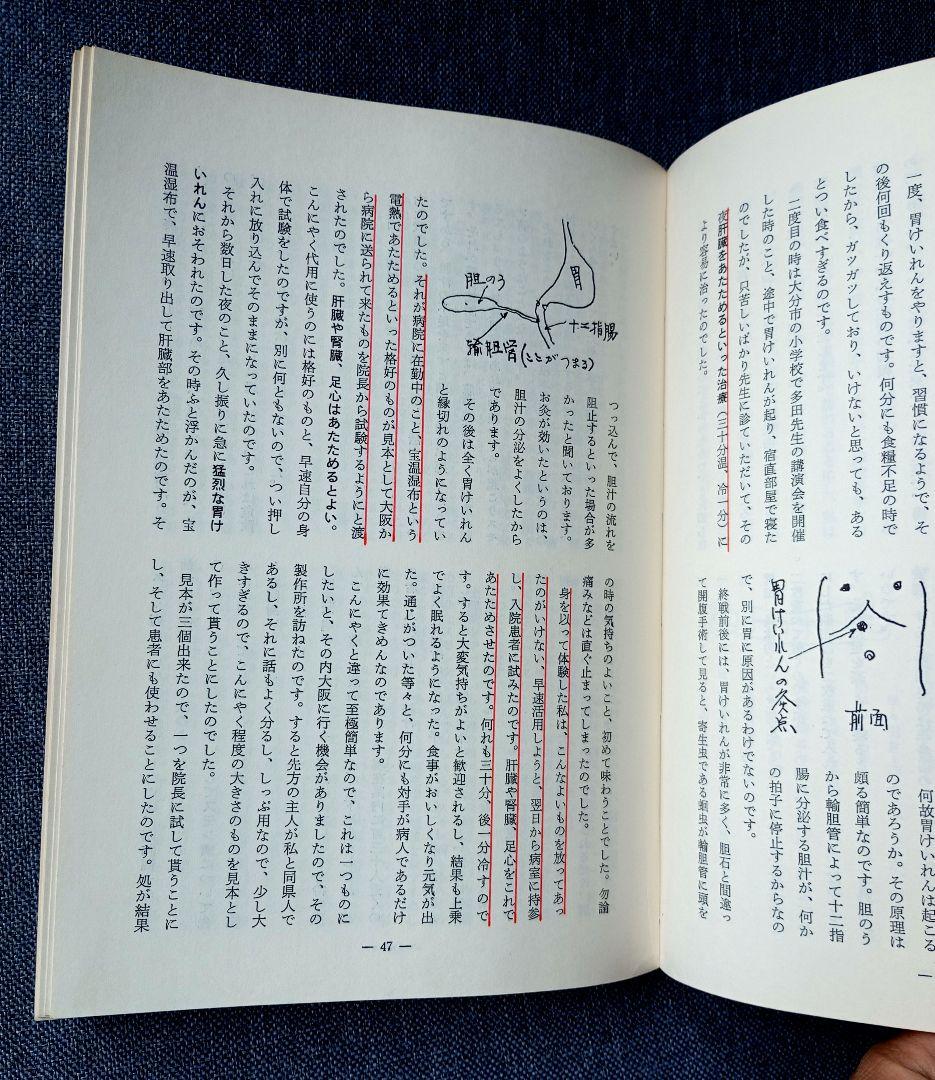 一度、胃けいれんをやりますと、習慣になるようで、そ
の後何回もくり返えすものです。何分にも食糧不足の時で
したから、ガツガツしており、いけないと思っても、ある
とつい食べすぎるのです。
二度目の時は大分市の小学校で多田先生の講演会を開催
した時のこと、途中で胃けいれんが起り、宿直部屋で寝た
のでしたが、只苦しいばかり先生に診ていただいて、その
夜肝臓をあたためるといった治療(三十分温、冷一分)に
より容易に治ったのでした。
前面
胃けいれんの灸点
何故胃けいれんは起こる
のであろうか。その原理は
頗る簡単なのです。胆のう
から輸胆管によって十二指
腸に分泌する胆汁が、何か
の拍子に停止するからなの
で、別に胃に原因があるわけでないのです。
終戦前後には、胃けいれんが非常に多く、胆石と間違っ
て開腹手術して見ると、寄生虫である蛔虫が輸胆管に頭を
胃
胆のう
十二指腸
輸胆管(ここがつまる)
つっ込んで、胆汁の流れを
阻止するといった場合が多
かったと聞いております。
お灸が効いたというのは、
胆汁の分泌をよくしたから
であります。
その後は全く胃けいれん
と縁切れのようになってい
たのでした。それが病院に在勤中のこと、宝温湿布という
電熱であたためるといった格好のものが見本として大阪か
ら病院に送られて来たものを院長から試験するようにと渡
されたのでした。肝臓や腎臓、足心はあたためるとよい。
こんにやく代用に使うのには格好のものと、早速自分の身
体で試験をしたのですが、別に何ともないので、つい押し
入れに放り込んでそのままになっていたのです。
それから数日した夜のこと、久し振りに急に猛烈な胃け
いれんにおそわれたのです。その時ふと浮かんだのが、宝
温湿布で、早速取り出して肝臓部をあたためたのです。そ
の時の気持ちのよいこと、初めて味わうことでした。勿論
痛みなどは直ぐ止まってしまったのでした。
身を以って体験した私は、こんなよいものを放ってあっ
たのがいけない、早速活用しようと、翌日から病室に持参
し、入院患者に試みたのです。肝臓や腎臓、足心をこれで
あたためさせたのです。何れも三十分、後一分冷すので
す。すると大変気持ちがよいと歓迎されるし、結果も上乗
でよく眠れるようになった。食事がおいしくなり元気が出
た。通じがついた等々と、何分にも対手が病人であるだけ
に効果てきめんなのであります。
こんにやくと違って至極簡単なので、これは一つものに
したいと、その内大阪に行く機会がありましたので、その
製作所を訪ねたのです。すると先方の主人が私と同県人で
あるし、それに話もよく分るし、しっぷ用なので、少し大
きすぎるので、こんにやく程度の大きさのものを見本とし
て作って貰うことにしたのでした。
見本が三個出来たので、一つを院長に試して貰うことに
し、そして患者にも使わせることにしたのです。処が結果
— 47 —